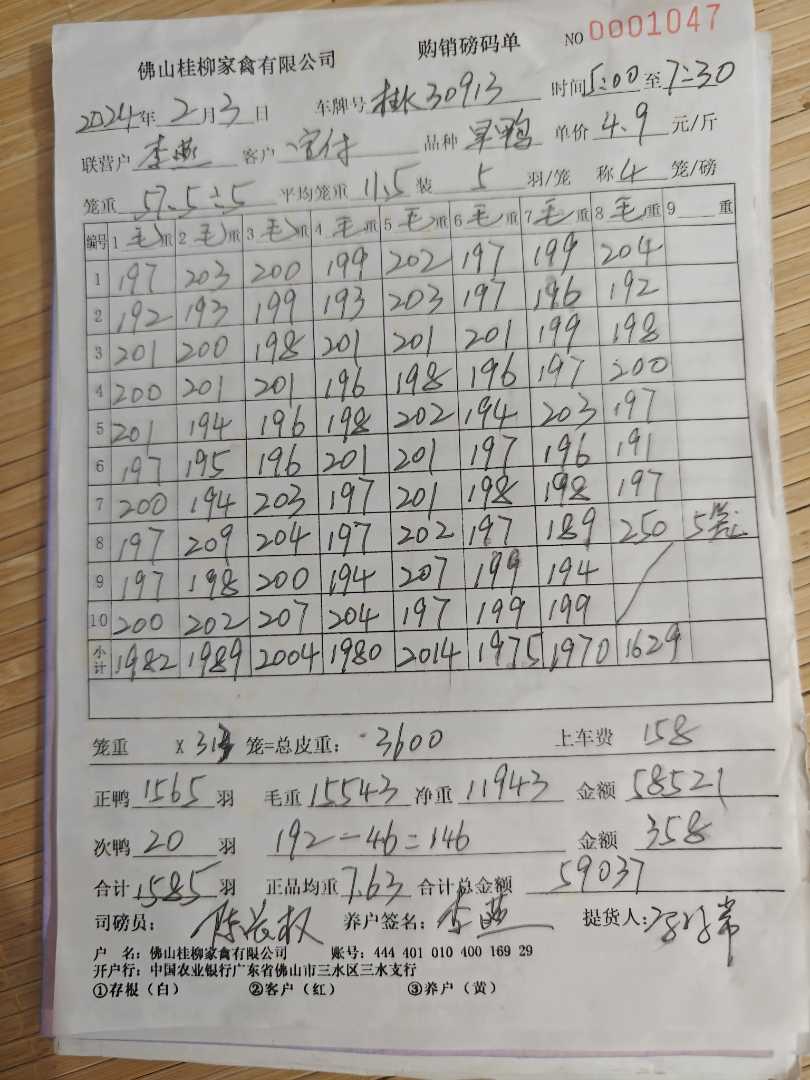 佛山桂柳家禽有限公司 购销磅码单 NO 0001047
2024年 2月 3日 车牌号 桂K30913 时间 5:00 至 7:30
联营户 李燕 客户 品种 单价 4.9 元/斤
笼重 57.5÷5 平均笼重 11.5 装 5 羽/笼 称 4 笼/磅
编号 1 毛重 2 毛重 3 毛重 4 毛重 5 毛重 6 毛重 7 毛重 8 毛重 9 重
1 197 203 200 199 202 197 199 204
2 192 193 199 193 203 197 196 192
3 201 200 198 201 201 201 199 198
4 200 201 201 196 198 196 197 200
5 201 194 196 198 202 194 203 197
6 197 195 196 201 201 197 196 191
7 200 194 203 197 201 198 198 197
8 197 209 204 197 202 197 189 250 5笼
9 197 198 200 194 207 199 194
10 200 202 207 204 197 199 199
小计 1982 1989 2004 1980 2014 1975 1970 1629
笼重 X 313 笼=总皮重: 3600 上车费 158
正鸭 1565 羽 毛重 15543 净重 11943 金额 58521
次鸭 20 羽 192-46=146 金额 358
合计 1585 羽 正品均重 7.63 合计总金额 59037
司磅员: 养户签名: 李燕 提货人:
户 名: 佛山桂柳家禽有限公司 账号: 444 401 010 400 169 29
开户行: 中国农业银行广东省佛山市三水区三水支行
①存根（白） ②客户（红） ③养户（黄）